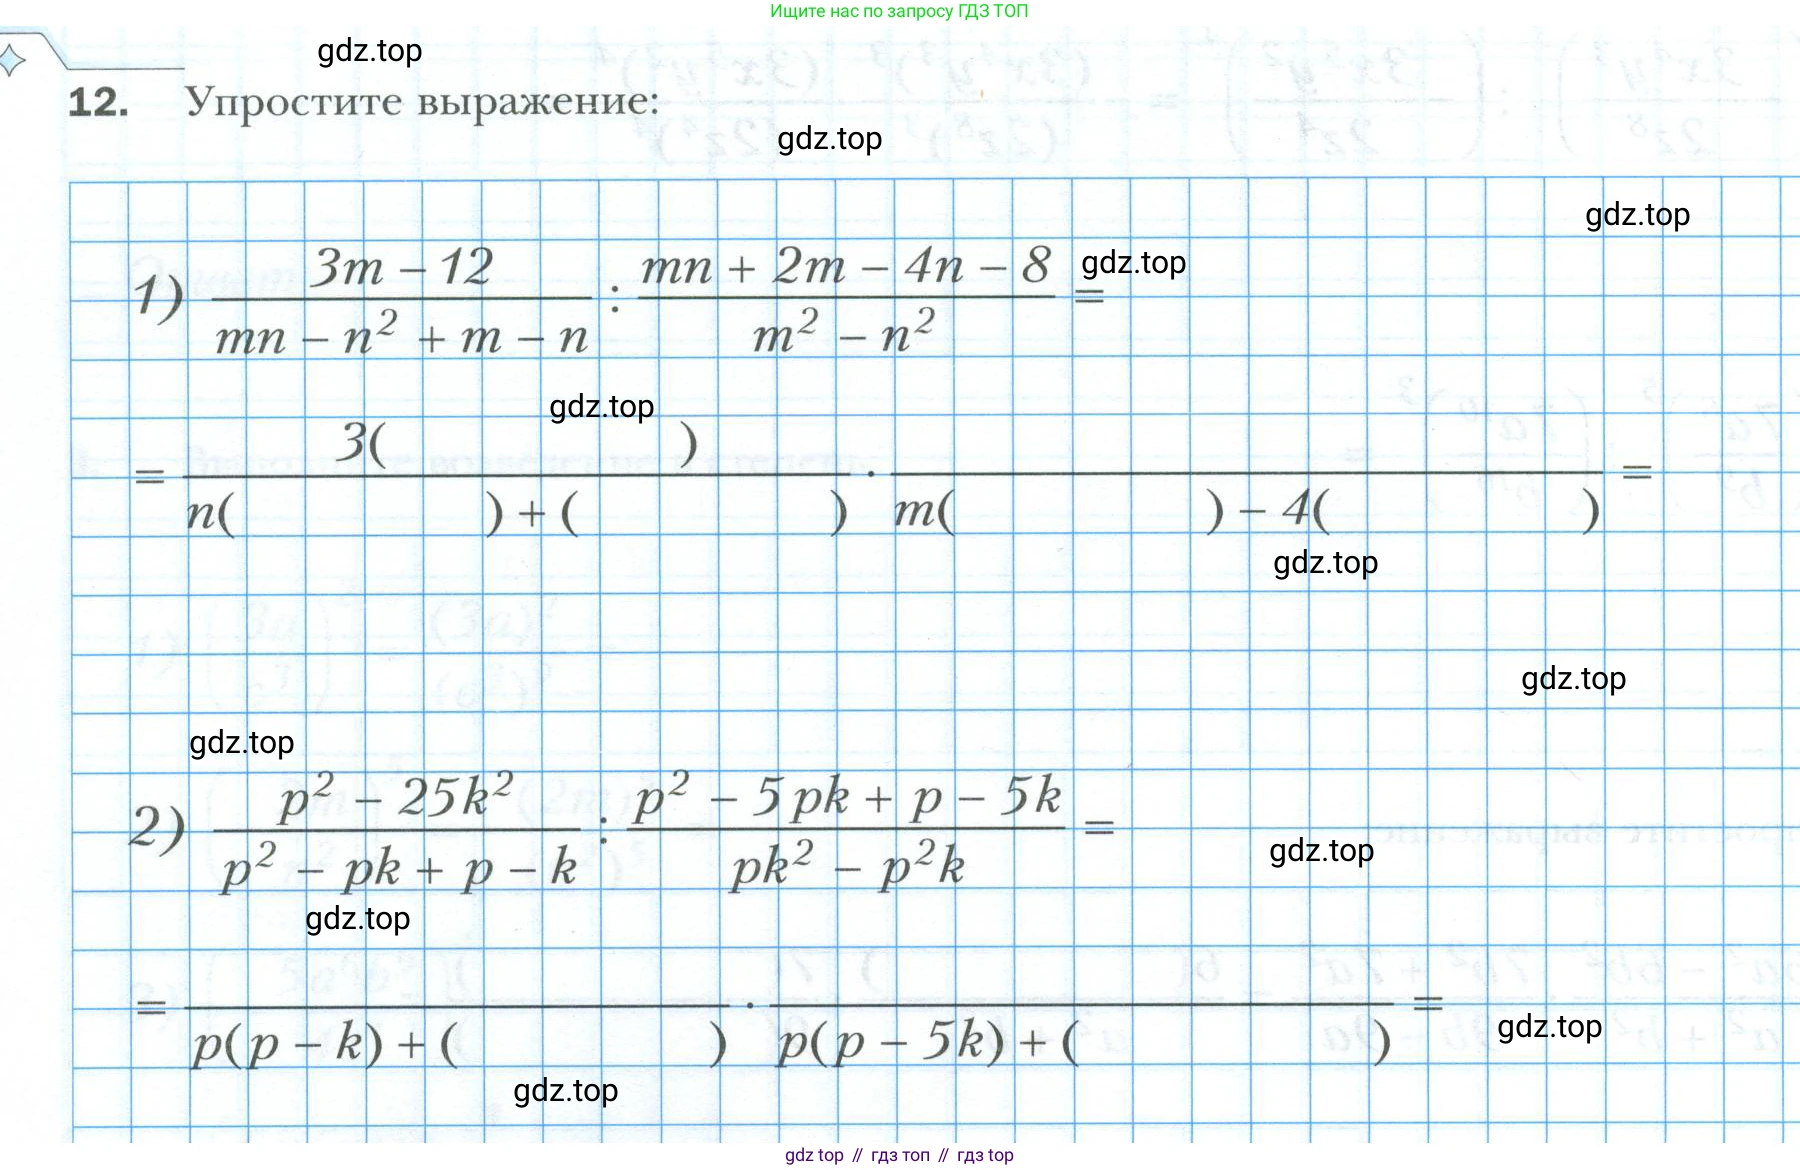 Ищите нас по запросу ГДЗ ТОП
gdz.top
12. Упростите выражение:
gdz.top
gdz.top
1) (3m – 12)/(mn – n² + m – n) : (mn + 2m – 4n – 8)/(m² – n²) =
gdz.top
gdz.top
= 3( )/(n( ) + ( )) · /(m( ) – 4( )) =
gdz.top
gdz.top
gdz.top
2) (p² – 25k²)/(p² – pk + p – k) : (p² – 5pk + p – 5k)/(pk² – p²k) =
gdz.top
gdz.top
= /(p(p – k) + ( )) · /(p(p – 5k) + ( )) =
gdz.top
gdz.top
gdz top // гдз топ // gdz top